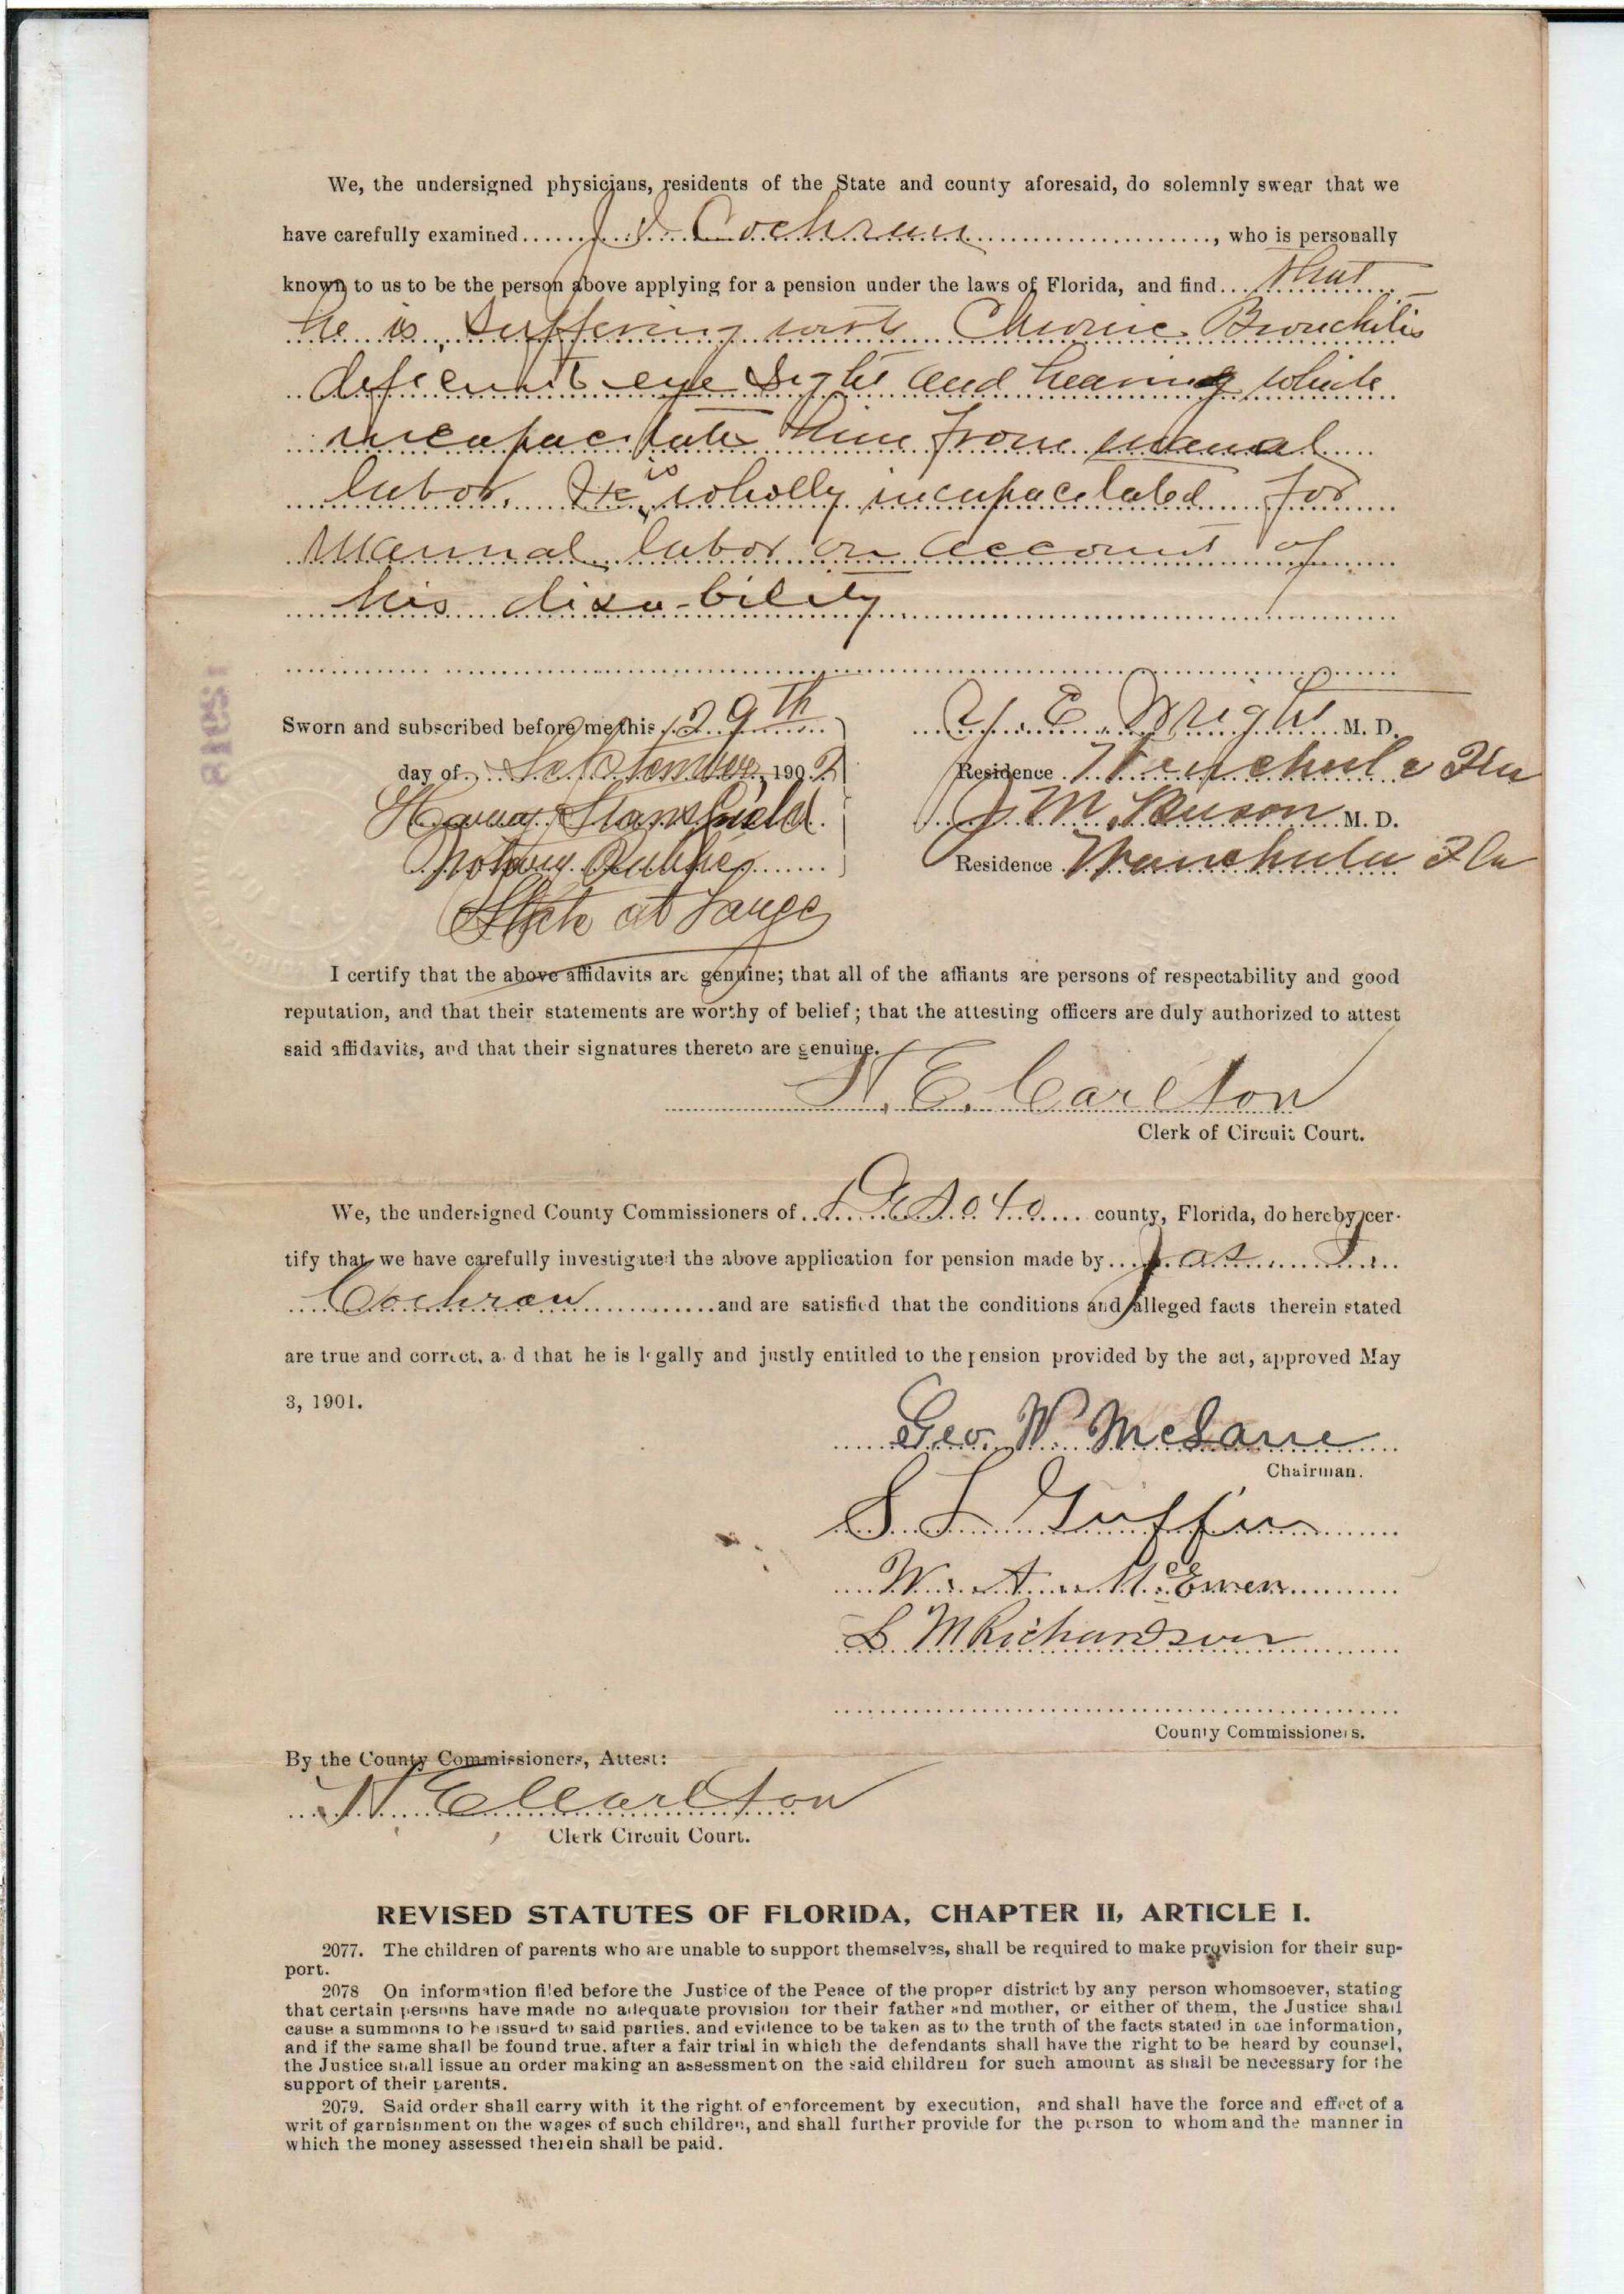 We, the undersigned physicians, residents of the State and county aforesaid, do solemnly swear that we
have carefully examined J. Cochran, who is personally
known to us to be the person above applying for a pension under the laws of Florida, and find that
he is suffering with Chronic Bronchitis
deficient eye sight and hearing which
incapacitates him from manual
labor. He is wholly incapacitated for
Manual labor on account of
his disability
Sworn and subscribed before me this 29th
E. Wright M. D.
day of September, 1902
Residence Wauchula Fla
Stansfield
J M M. D.
Notary Public
Residence Wauchula Fla
State at Large
I certify that the above affidavits are genuine; that all of the affiants are persons of respectability and good
reputation, and that their statements are worthy of belief; that the attesting officers are duly authorized to attest
said affidavits, and that their signatures thereto are genuine.
N. E. Carlton
Clerk of Circuit Court.
We, the undersigned County Commissioners of DeSoto county, Florida, do hereby cer-
tify that we have carefully investigated the above application for pension made by Jas
Cochran and are satisfied that the conditions and alleged facts therein stated
are true and correct, and that he is legally and justly entitled to the pension provided by the act, approved May
3, 1901.
Geo. W. McLane
Chairman.
S L Griffin
W. A. McEwen
L M Richardson
County Commissioners.
By the County Commissioners, Attest:
N. E. Carlton
Clerk Circuit Court.
REVISED STATUTES OF FLORIDA, CHAPTER II, ARTICLE I.
2077. The children of parents who are unable to support themselves, shall be required to make provision for their sup-
port.
2078 On information filed before the Justice of the Peace of the proper district by any person whomsoever, stating
that certain persons have made no adequate provision for their father and mother, or either of them, the Justice shall
cause a summons to be issued to said parties, and evidence to be taken as to the truth of the facts stated in the information,
and if the same shall be found true, after a fair trial in which the defendants shall have the right to be heard by counsel,
the Justice shall issue an order making an assessment on the said children for such amount as shall be necessary for the
support of their parents.
2079. Said order shall carry with it the right of enforcement by execution, and shall have the force and effect of a
writ of garnishment on the wages of such children, and shall further provide for the person to whom and the manner in
which the money assessed therein shall be paid.